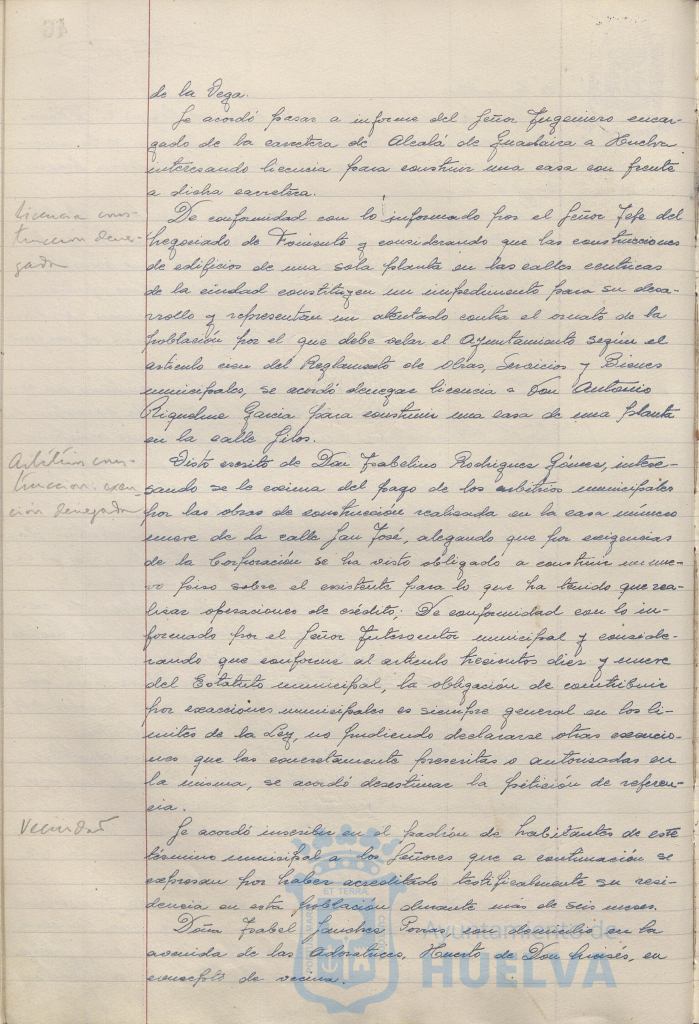 de la Vega.
Se acordó pasar a informe del Señor Ingeniero encar-
gado de la carretera de Alcalá de Guadaira a Huelva
interesando licencia para construir una casa con frente
a dicha carretera.
Licencia cons-
truccion dene-
gada
De conformidad con lo informado por el Señor Jefe del
Negociado de Fomento y considerando que las construcciones
de edificios de una sola planta en las calles centricas
de la ciudad constituyen un impedimento para su desa-
rrollo y representan un atentado contra el ornato de la
población por el que debe velar el Ayuntamiento según el
articulo cien del Reglamento de Obras, Servicios y Bienes
municipales, se acordó denegar licencia a Don Antonio
Riquelme Garcia para construir una casa de una planta
en la calle Silos.
Arbitrio cons-
truccion. exen-
ción denegada
Visto escrito de Don Isabelino Rodriguez Gómez, intere-
sando se le exima del pago de los arbitrios municipales
por las obras de construcción realizada en la casa número
nueve de la calle San José, alegando que por exigencias
de la Corporación se ha visto obligado a construir un nue-
vo piso sobre el existente para lo que ha tenido que rea-
lizar operaciones de crédito; De conformidad con lo in-
formado por el Señor Interventor municipal y conside-
rando que conforme al articulo trescientos diez y nueve
del Estatuto municipal, la obligación de contribuir
por exacciones municipales es siempre general en los li-
mites de la Ley, no pudiendo declararse otras exencio-
nes que las concretamente prescritas o autorizadas en
la misma, se acordó desestimar la petición de referen-
cia.
Vecindad
Se acordó inscribir en el padrón de habitantes de este
término municipal a los Señores que a continuación se
expresan por haber acreditado testificalmente su resi-
dencia en esta población durante más de seis meses.
Doña Isabel Sanchez Porras, con domicilio en la
avenida de las Adoratrices, Huerto de Don Moisés, en
concepto de vecina.
Ayuntamiento de
HUELVA